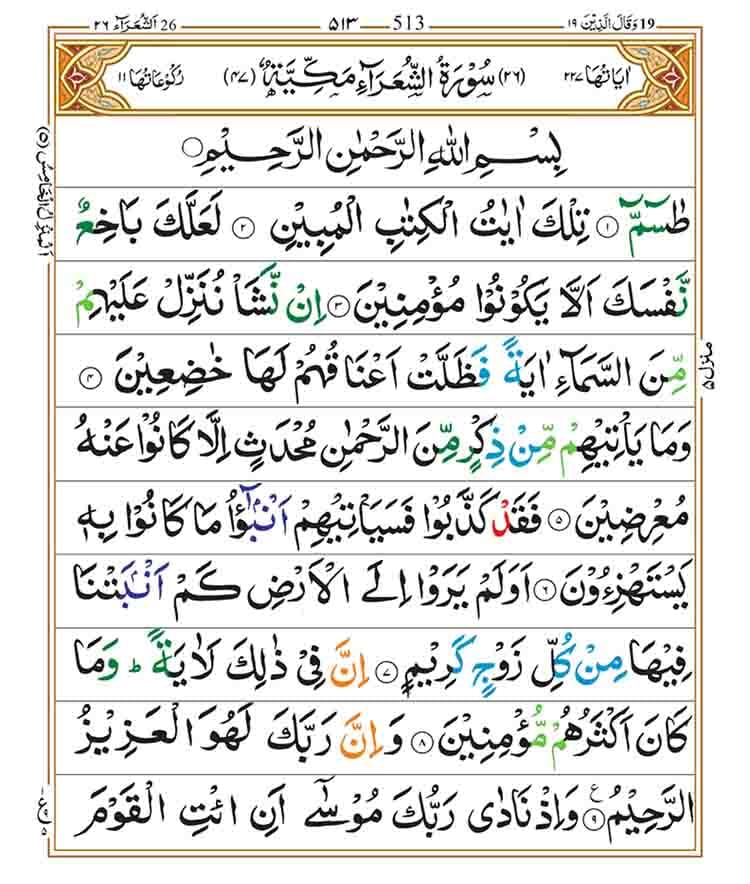 19 وَقَالَ الَّذِیْنَ ۱۹ 513 ۵۱۳ 26 اَلشُّعَرَآء ۲۶
اٰیَاتُهَا ۲۲۷ (۲۶) سُوْرَةُ الشُّعَرَآءِ مَكِّیَّةٌ (۴۷) رُكُوْعَاتُهَا ۱۱
بِسْمِ اللهِ الرَّحْمٰنِ الرَّحِیْمِ
طٰسٓمّٓ ۱ تِلْكَ اٰیٰتُ الْكِتٰبِ الْمُبِیْنِ ۲ لَعَلَّكَ بَاخِعٌ
نَّفْسَكَ اَلَّا یَكُوْنُوْا مُؤْمِنِیْنَ ۳ اِنْ نَّشَاْ نُنَزِّلْ عَلَیْهِمْ
مِّنَ السَّمَآءِ اٰیَةً فَظَلَّتْ اَعْنَاقُهُمْ لَهَا خٰضِعِیْنَ ۴
وَمَا یَاْتِیْهِمْ مِّنْ ذِكْرٍ مِّنَ الرَّحْمٰنِ مُحْدَثٍ اِلَّا كَانُوْا عَنْهُ
مُعْرِضِیْنَ ۵ فَقَدْ كَذَّبُوْا فَسَیَاْتِیْهِمْ اَنْۢبٰٓؤُا مَا كَانُوْا بِهٖ
یَسْتَهْزِءُوْنَ ۶ اَوَلَمْ یَرَوْا اِلَی الْاَرْضِ كَمْ اَنْۢبَتْنَا
فِیْهَا مِنْ كُلِّ زَوْجٍ كَرِیْمٍ ۷ اِنَّ فِیْ ذٰلِكَ لَاٰیَةً ؕ وَمَا
كَانَ اَكْثَرُهُمْ مُّؤْمِنِیْنَ ۸ وَاِنَّ رَبَّكَ لَهُوَ الْعَزِیْزُ
الرَّحِیْمُ ۹ وَاِذْ نَادٰی رَبُّكَ مُوْسٰۤی اَنِ ائْتِ الْقَوْمَ
اَلْمَنْزِلُ الْخَامِسُ (۵)
منزل ۵